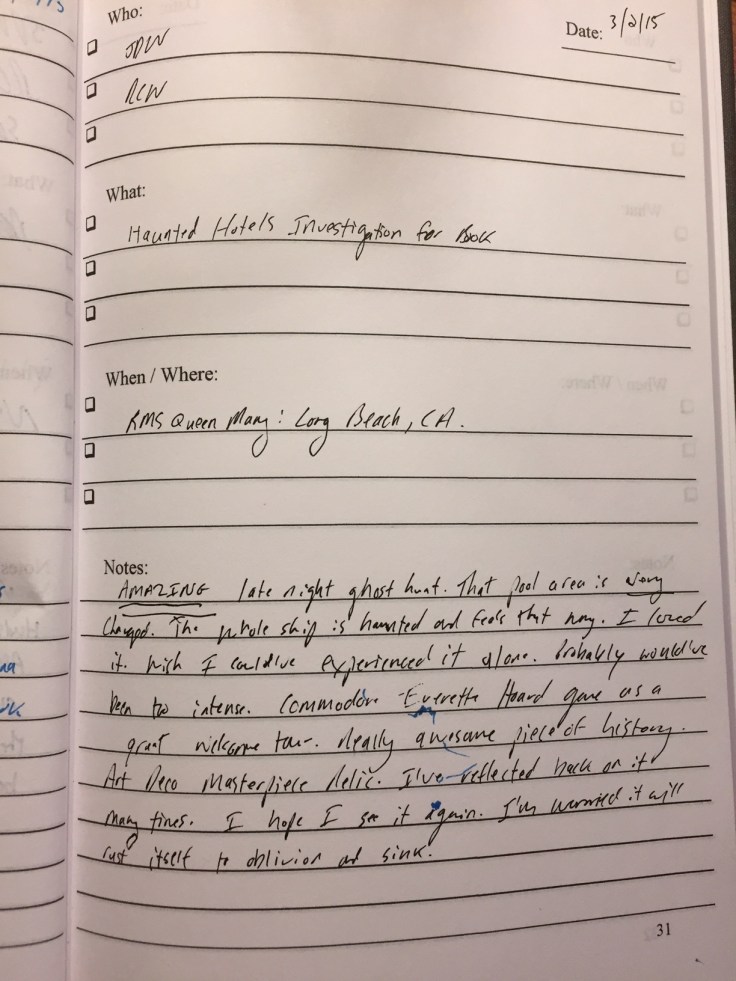 Who:
Date: 3/2/15
JDW
RCW
What:
Haunted Hotels Investigation for Book
When / Where:
RMS Queen Mary: Long Beach, CA.
Notes:
AMAZING late night ghost hunt. That pool area is very
Changed. The whole ship is haunted and feels that way. I loved
it. Wish I could've experienced it alone. Probably would've
been too intense. Commodore Everette Hoard gave us a
great welcome tour. Really awesome piece of history.
Art Deco Masterpiece Relic. I've reflected back on it
many times. I hope I see it again. I'm worried it will
rust itself to oblivion and sink.
31